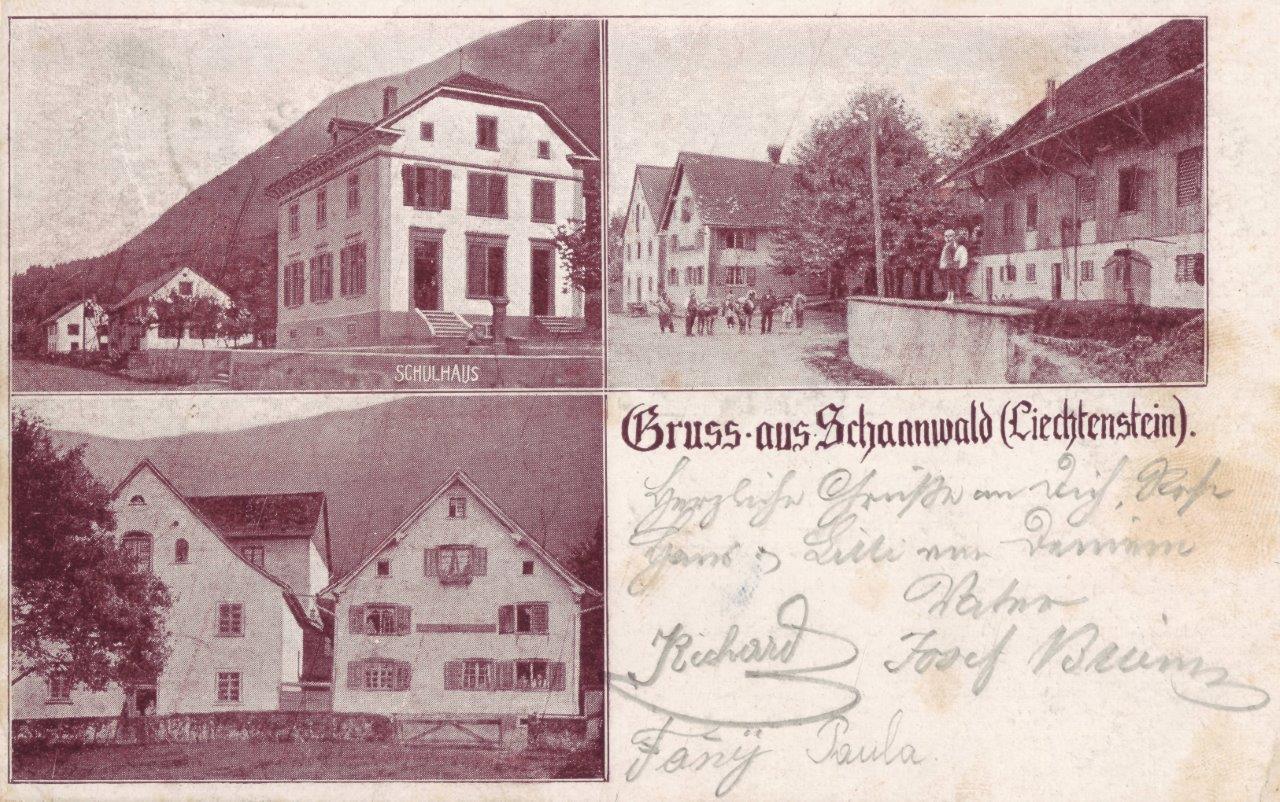 SCHULHAUS
Gruss aus Schaanwald (Liechtenstein).
Herzliche Grüße an Dich,
Hans Lilli von Deinem
Vater
Richard Josef
Fany Paula.